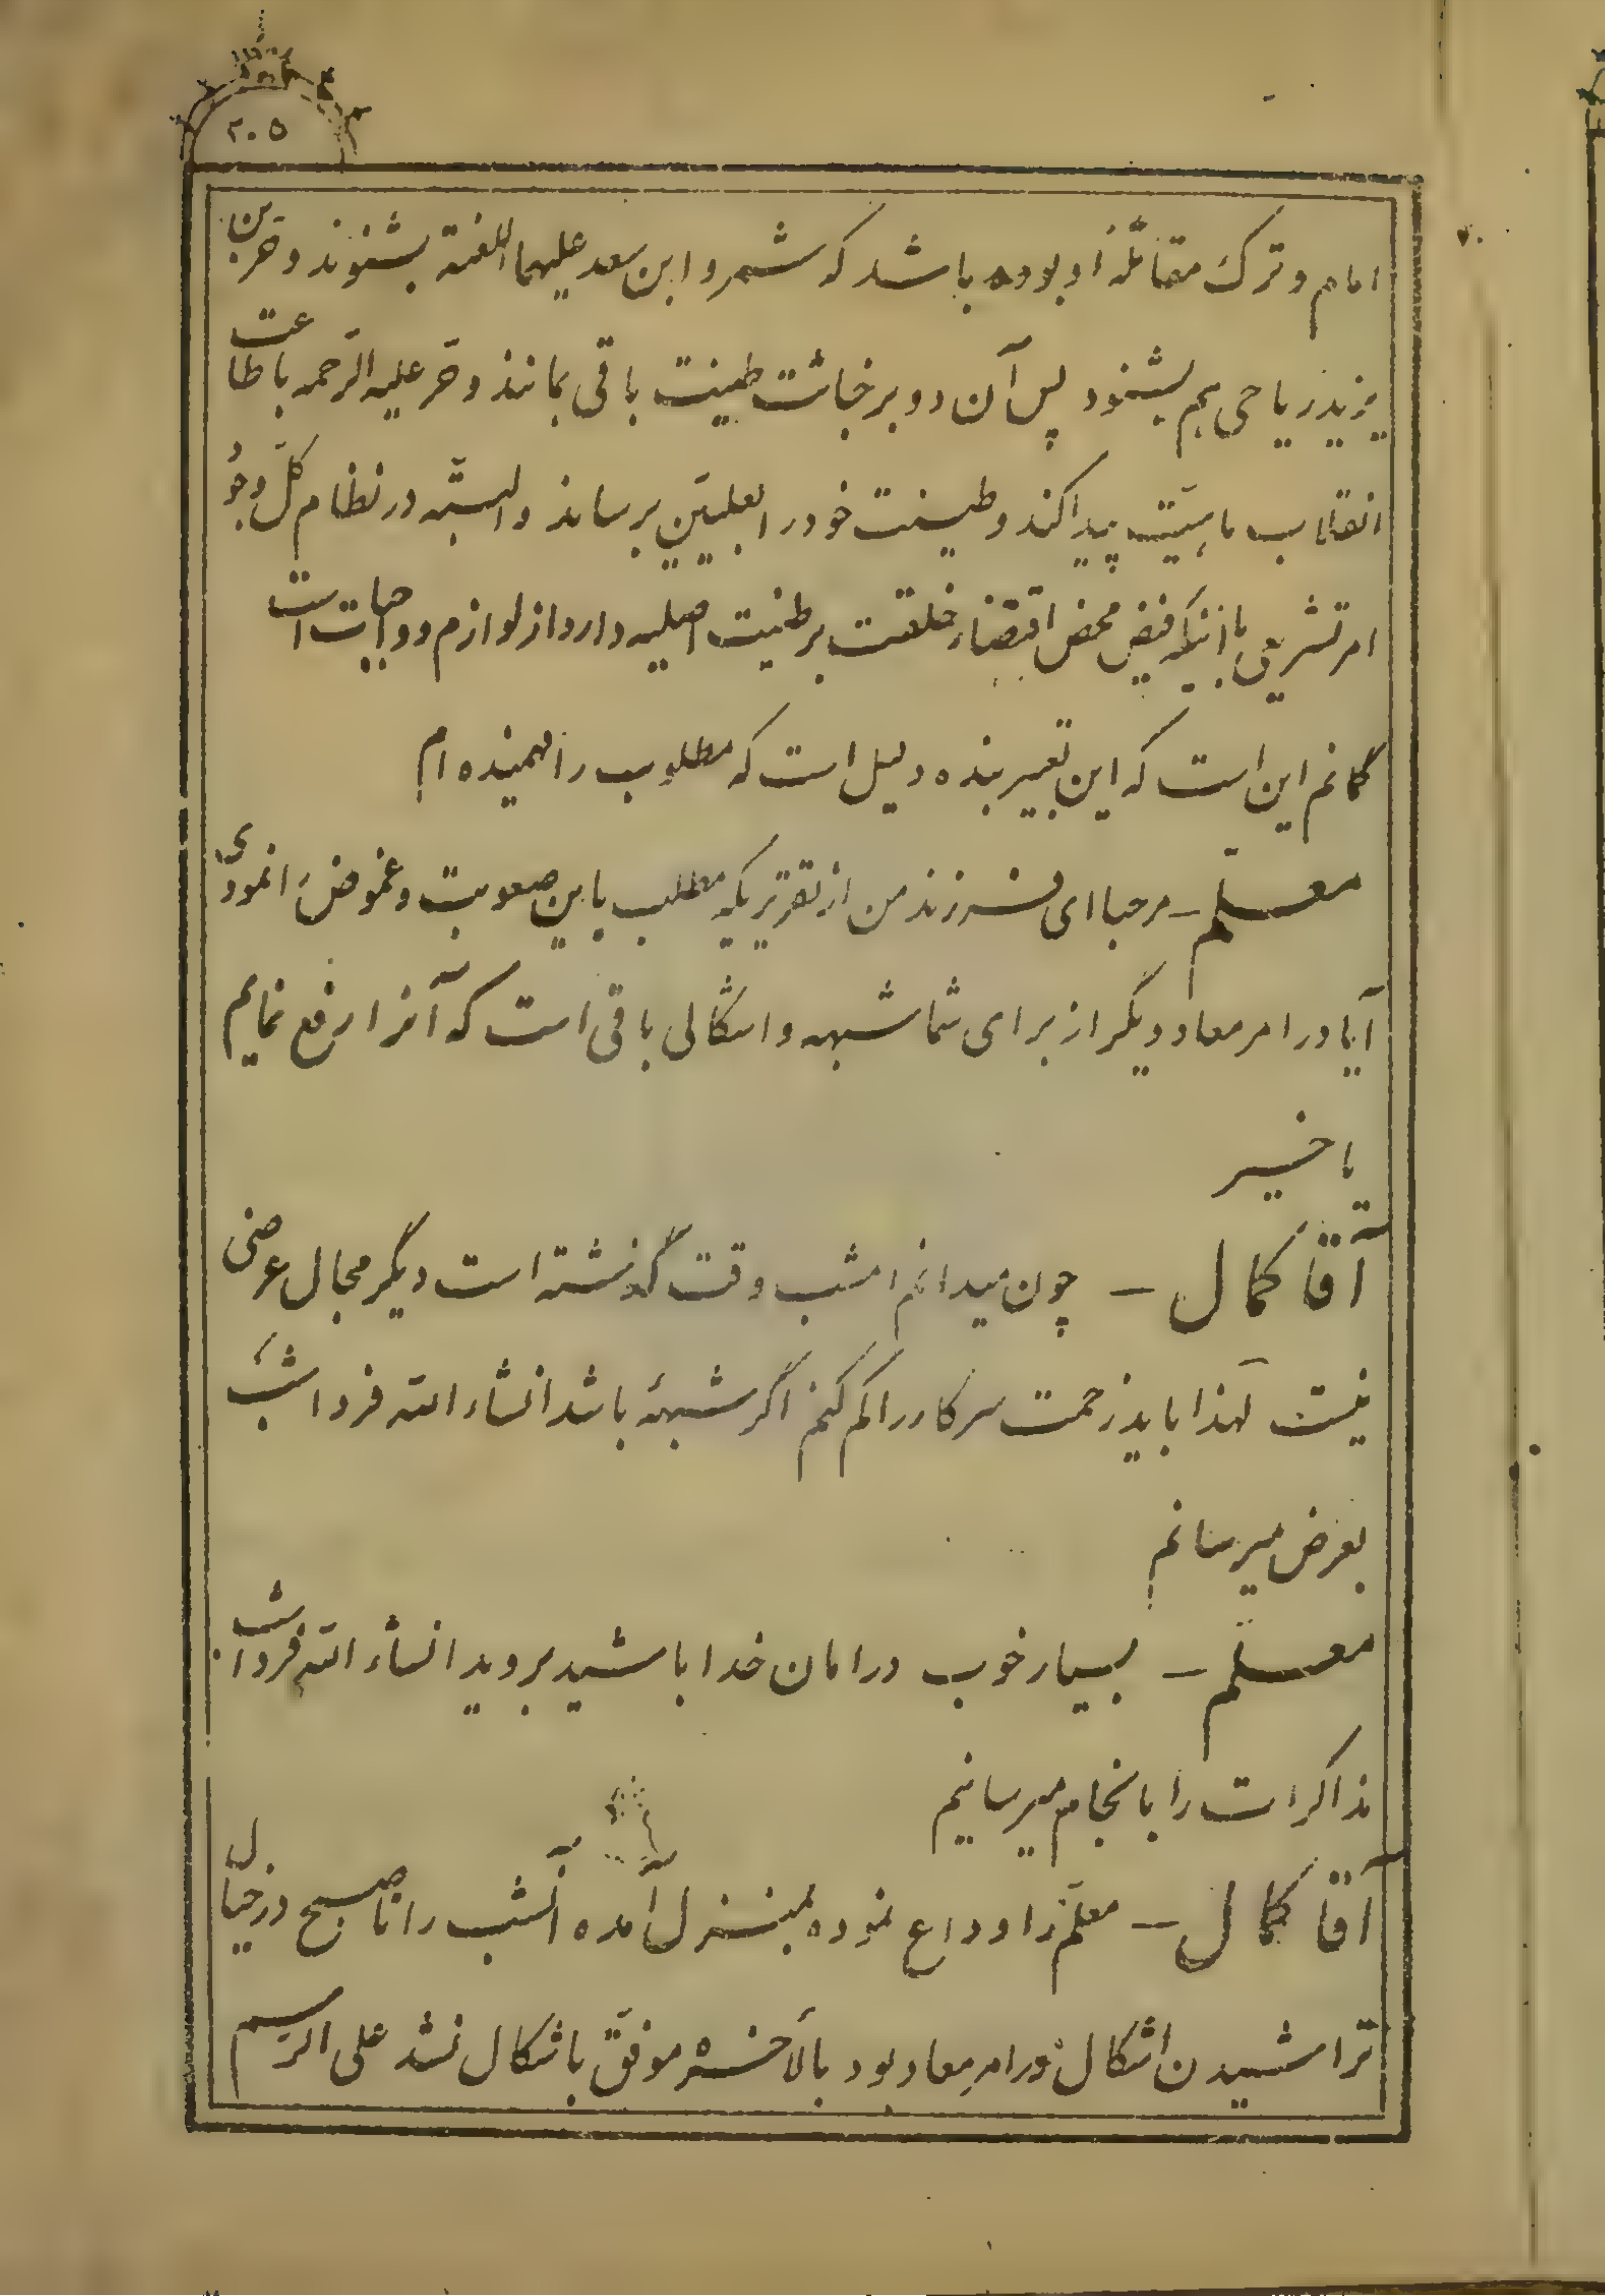 ۲۰۵
امام و ترک مقاتلهٔ او بوده باشد که شمر و ابن سعد علیهما اللعنة بشنوند و حر بن
یزید ریاحی هم بشنود پس آن دو بر خباثت طینت باقی بمانند و حر علیه الرحمه باطاعت
انقلاب ماهیت پیدا کند و طینت خود را بعلیین برساند و البته در نظام کل وجو
امر تشریعی با اینکه فیض محض اقتضاء خلقت بر طینت اصلیه دارد از لوازم و واجبات است
گمانم این است که این تعبیر بنده دلیل است که مطلوب را فهمیده ام
معلم – مرحبا ای فرزند من از تقریریکه مطلب باین صعوبت و غموض را نمودی
آیا در امر معاد دیگر از برای شما شبهه و اشکالی باقی است که آنرا رفع نمایم
یا خیر
آقا کمال – چون میدانم امشب وقت گذشته است دیگر مجال عرضی
نیست لهذا باید زحمت سرکار را کم کنم اگر شبههٔ باشد انشاء الله فردا شب
بعرض میرسانم
معلم – بسیار خوب در امان خدا باشید بروید انشاء الله فردا شب
مذاکرات را بانجام میرسانیم
آقا کمال – معلم را وداع نموده بمنزل آمده آنشب را تا صبح در خیال
تراشیدن اشکال در امر معاد بود بالأخره موفق باشکال نشد علی الرسم